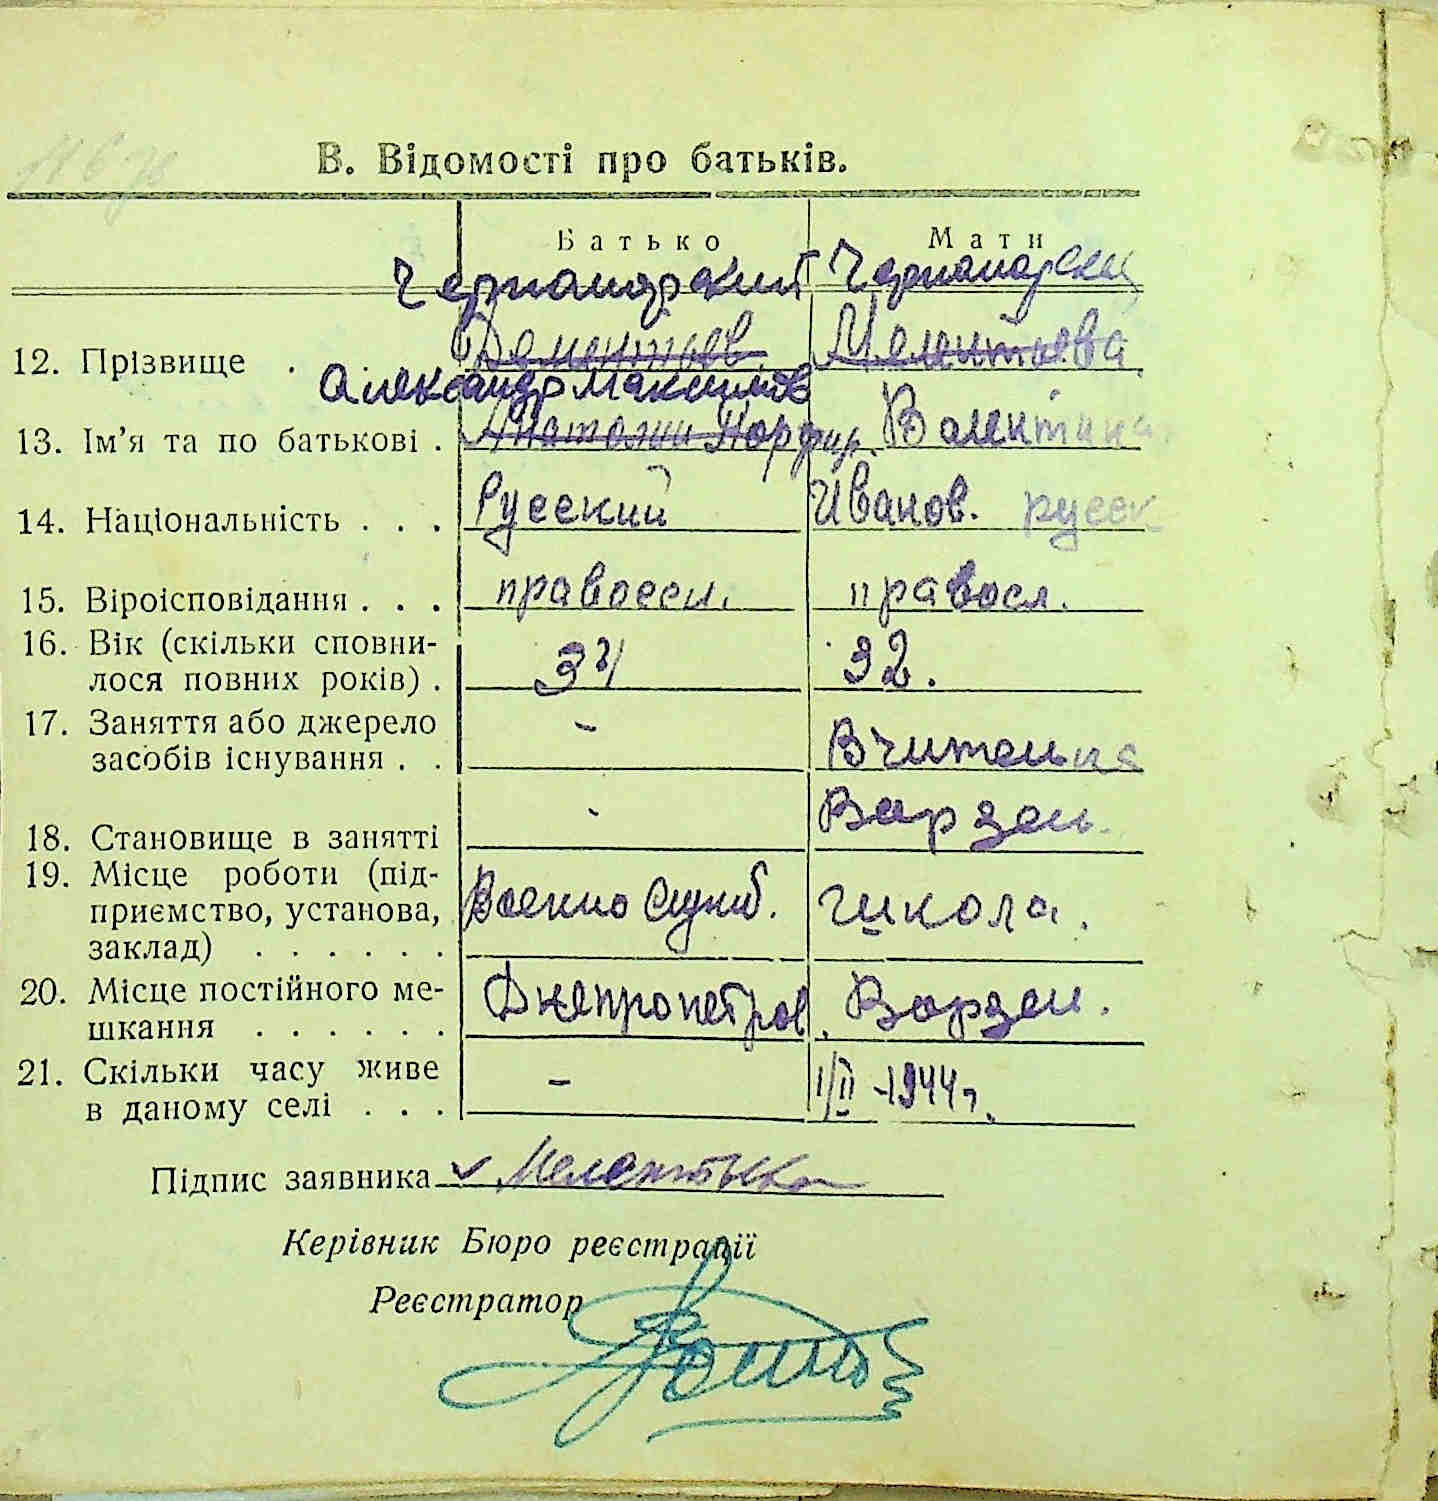 В. Відомості про батьків.
Батько Мати
Черноморский Черноморски
12. Прізвище . . Дементьев Мелентьева
Александр Максимов
13. Ім'я та по батькові . Анатолий Порфир. Валентина
14. Національність . . . Русский Иванов. русск
15. Віроісповідання . . . правосл. правосл.
16. Вік (скільки сповни-
лося повних років) . 34 32.
17. Заняття або джерело
засобів існування . . - Вчителька
18. Становище в занятті - Варзел.
19. Місце роботи (під-
приємство, установа,
заклад) . . . . . . Военно служб. школа.
20. Місце постійного ме-
шкання . . . . . . Днепропетров. Ворзел.
21. Скільки часу живе
в даному селі . . . - 1/II -1944г.
Підпис заявника Мелентьева
Керівник Бюро реєстрації
Реєстратор